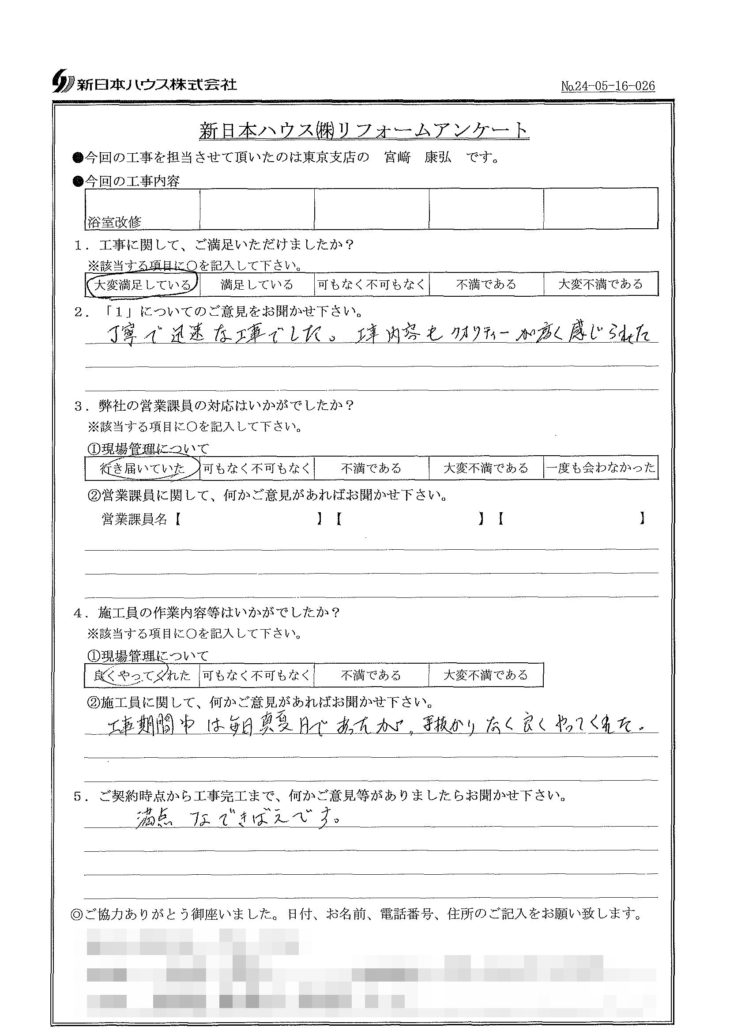 新日本ハウス株式会社
№24-05-16-026
新日本ハウス㈱リフォームアンケート
●今回の工事を担当させて頂いたのは東京支店の 宮﨑 康弘 です。
●今回の工事内容
浴室改修
1．工事に関して、ご満足いただけましたか？
※該当する項目に○を記入して下さい。
大変満足している 満足している 可もなく不可もなく 不満である 大変不満である
2．「1」についてのご意見をお聞かせ下さい。
丁寧で迅速な工事でした。工事内容もクオリティーが高く感じられた
3．弊社の営業課員の対応はいかがでしたか？
※該当する項目に○を記入して下さい。
①現場管理について
行き届いていた 可もなく不可もなく 不満である 大変不満である 一度も会わなかった
②営業課員に関して、何かご意見があればお聞かせ下さい。
営業課員名【 】【 】【 】
4．施工員の作業内容等はいかがでしたか？
※該当する項目に○を記入して下さい。
①現場管理について
良くやってくれた 可もなく不可もなく 不満である 大変不満である
②施工員に関して、何かご意見があればお聞かせ下さい。
工事期間中は毎日真夏日であったが、手抜かりなく良くやってくれた。
5．ご契約時点から工事完工まで、何かご意見等がありましたらお聞かせ下さい。
満点なできばえです。
◎ご協力ありがとう御座いました。日付、お名前、電話番号、住所のご記入をお願い致します。